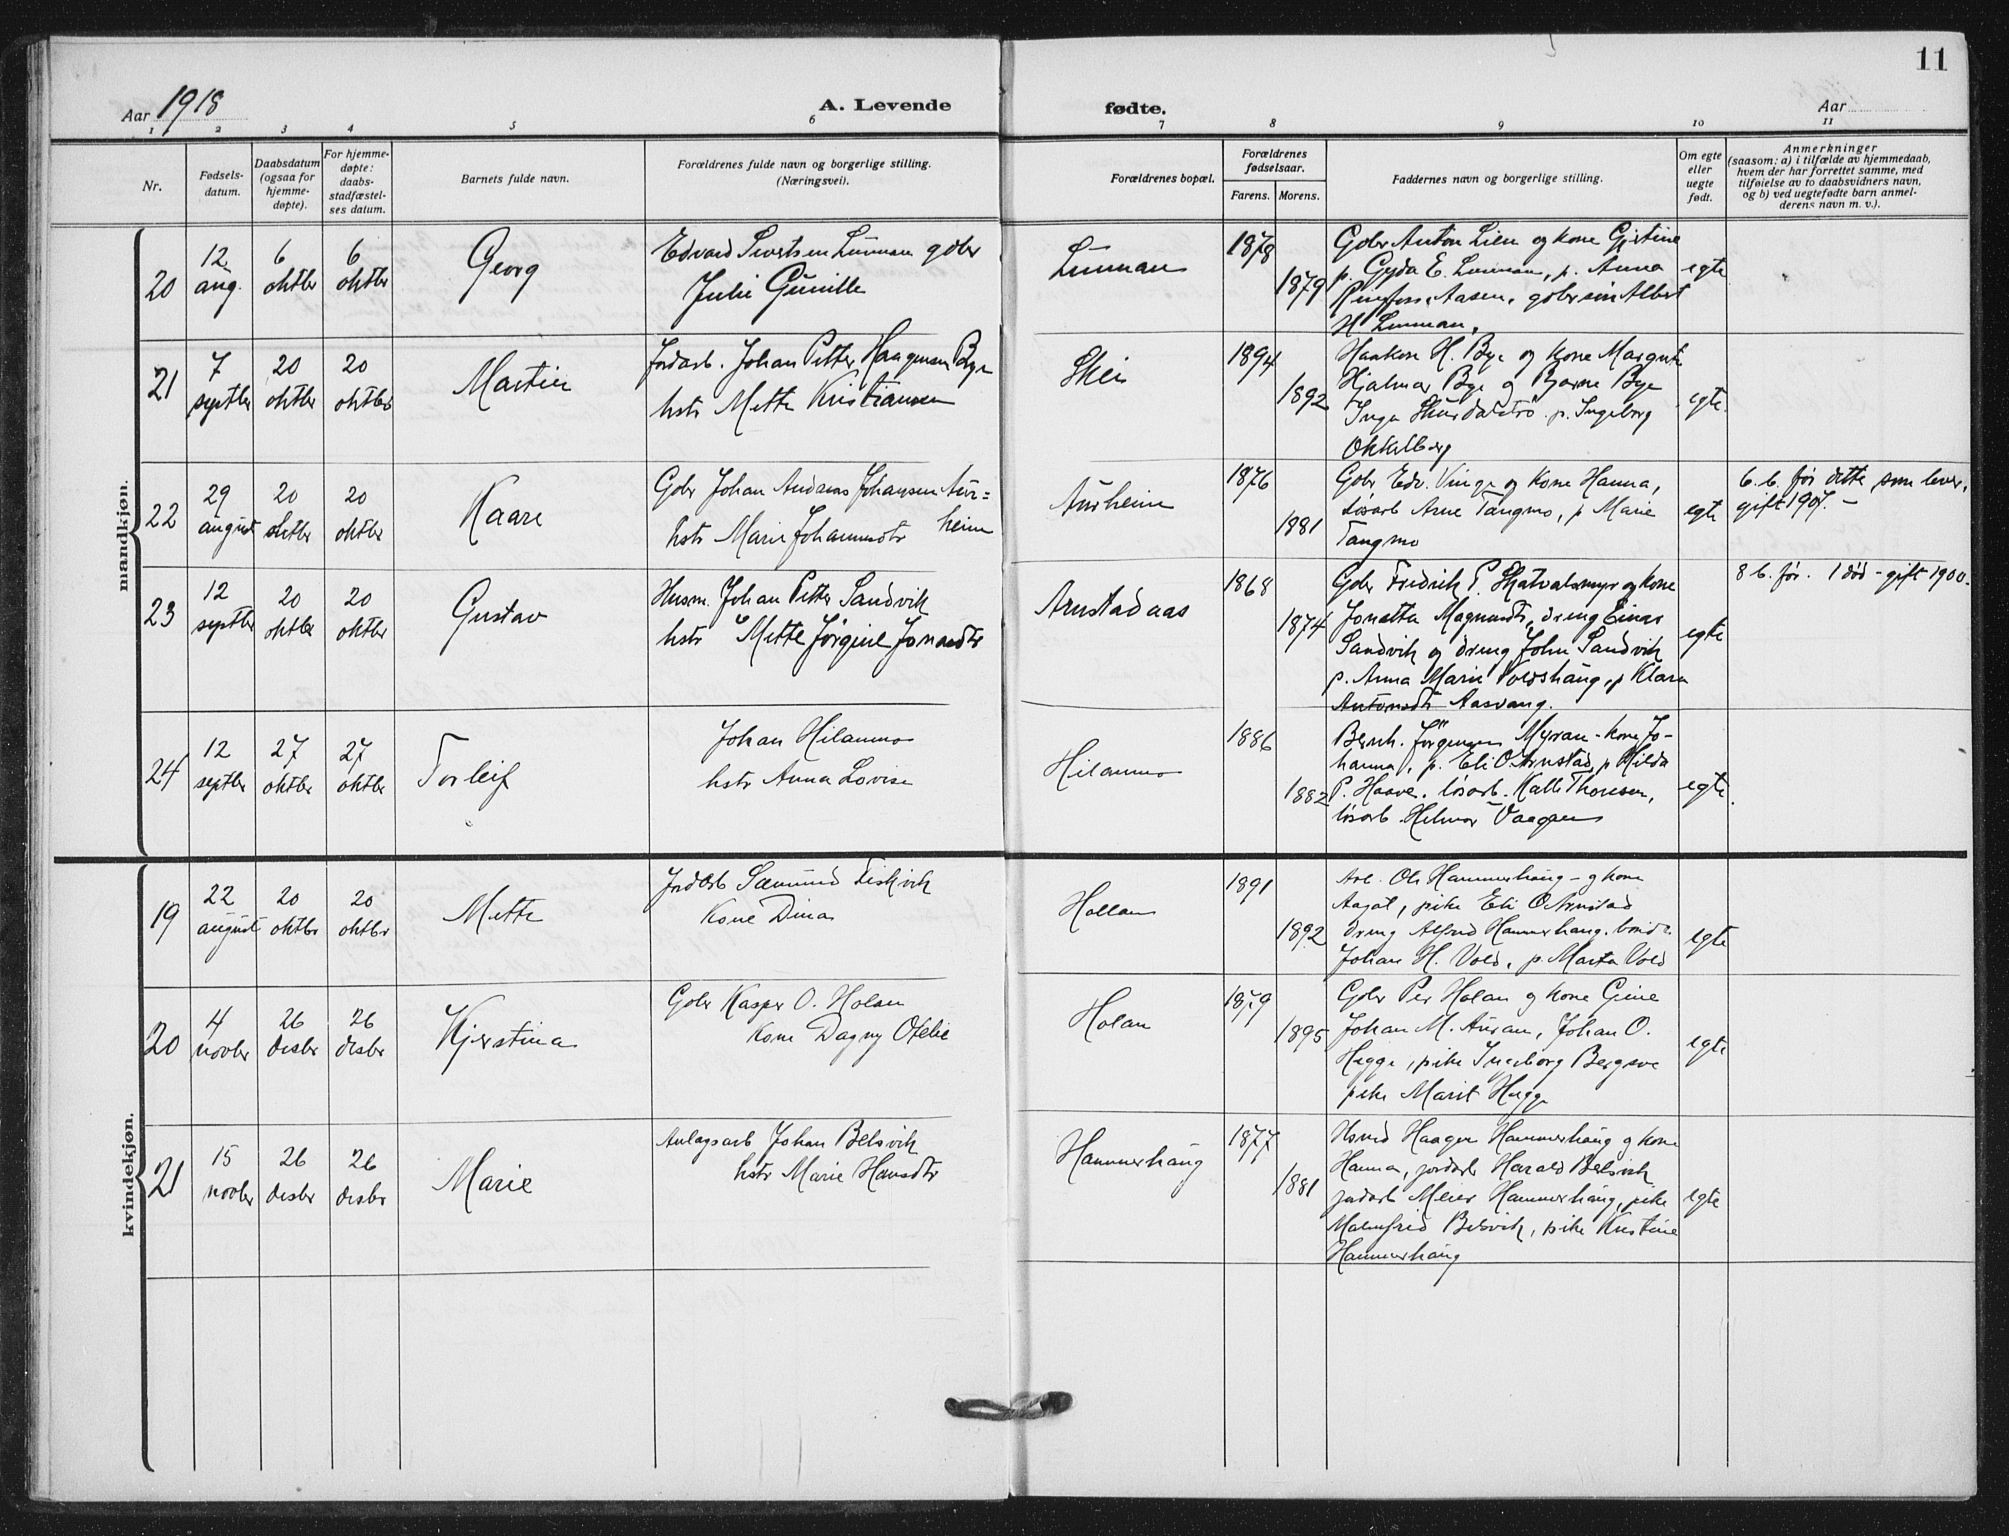 11
Aar 1918
A. Levende fødte.
Aar
1 2 3 4 5 6 7 8 9 10 11
Nr.
Fødsels-
datum.
Daabsdatum
(ogsaa for
hjemme-
døpte).
For hjemme-
døpte:
daabs-
stadfæstel-
ses datum.
Barnets fulde navn.
Forældrenes fulde navn og borgerlige stilling.
(Næringsvei).
Forældrenes bopæl.
Forældrenes
fødselsaar.
Farens. Morens.
Faddernes navn og borgerlige stilling.
Om egte
eller
uegte
født.
Anmerkninger
(saasom: a) i tilfælde av hjemmedaab,
hvem der har forrettet samme, med
tilføielse av to daabsvidners navn,
og b) ved uegtefødte barn anmel-
derens navn m. v.).
mandkjøn.
20
12
aug.
6
oktbr
6
oktbr
Georg
Edvard Sivertsen Lunman gbr
Julie Gunille
Lunman
1878
1879
Gbr Anton Lien og kone Gjertine
p. Gyda E. Lunman, p. Anna
Aasen, gbr søn Albert
H Lunman.
egte
21
7
septbr
20
oktbr
20
oktbr
Martin
Jordarb. Johan Petter Haagensen Bye
hstr Mette Kristiansen
Skei
1894
1892
Haakon H. Bye og kone Margrete
Hjalmar Bye og Bjarne Bye
Inga p. Ingeborg
Okkelberg
egte
22
29
august
20
oktbr
20
oktbr
Kaare
Gbr Johan Andreas Johansen Aur=
hstr Marie Johannesdtr heim
Aurheim
1876
1881
Gbr Edv. Vinge og kone Hanna,
løsarb Arne Tangmo, p Marie
Tangmo
egte
6. b. før dette, som lever,
gift 1907. -
23
12
septbr
20
oktbr
20
oktbr
Gustav
Husm. Johan Petter Sandvik
hstr Mette Jørgine Jonasdtr
Arnstadaas
1868
1874
Gbr Fredrik P. Skatvalsmyr og kone
Jonetta Magnusdtr, dreng Einar
Sandvik og dreng John Sandvik
p. Anna Marie Voldshaug, p Klara
Antonsdtr Aasvang.
egte
8 b. før. 1 død - gift 1900.
24
12
septbr
27
oktbr
27
oktbr
Torleif
Johan Hilammo
hstr Anna Lovise
Hilammo
1886
1882
Bernh. Jørgensen Myran - kone Jo-
hanna, p. Eli O Arnstad, p Hilda
P. Haave, løsarb. Kalle Thoresen,
løsarb Helmer Vaagen
egte
kvindekjøn.
19
22
august
20
oktbr
20
oktbr
Mette
Jordarb Sæmund Fiskvik
Kone Dina
Hollan
1891
1892
Arb. Ole Hammerhaug - og kone
Aagot, pike Eli O Arnstad
dreng Alfred Hammerhaug. bonde
Johan H. Vold, p. Marta Vold
egte
20
4
novbr
26
desbr
26
desbr
Kjerstina
Gbr Kasper O. Holan
kone Dagny Ofelie
Holan
1879
1895
Gbr Per Holan og kone Gine
Johan M. Auran, Johan O.
Hegge, pike Ingeborg Bergsve
pike Marit Hegge
egte
21
15
novbr
26
desbr
26
desbr
Marie
Anlægsarb Johan Belsvik
hstr Marie Hansdtr
Hammerhaug
1877
1881
Haagen Hammerhaug og kone
Hanna, jordarb Harald Belsvik
jordarb Meier Hammerhaug, pike
Malmfrid Belsvik, pike Kristine
Hammerhaug
egte